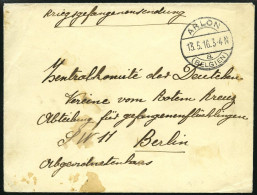 Kriegsgefangenensendung
ARLON
13.5.16.3-4N
a
(BELGIEN)
Zentralkomité der Deutschen
Vereine vom Roten Kreuz
Abteilung für gefangenenflüchtlingen
S W 11 Berlin
Abgeordnetenhaus